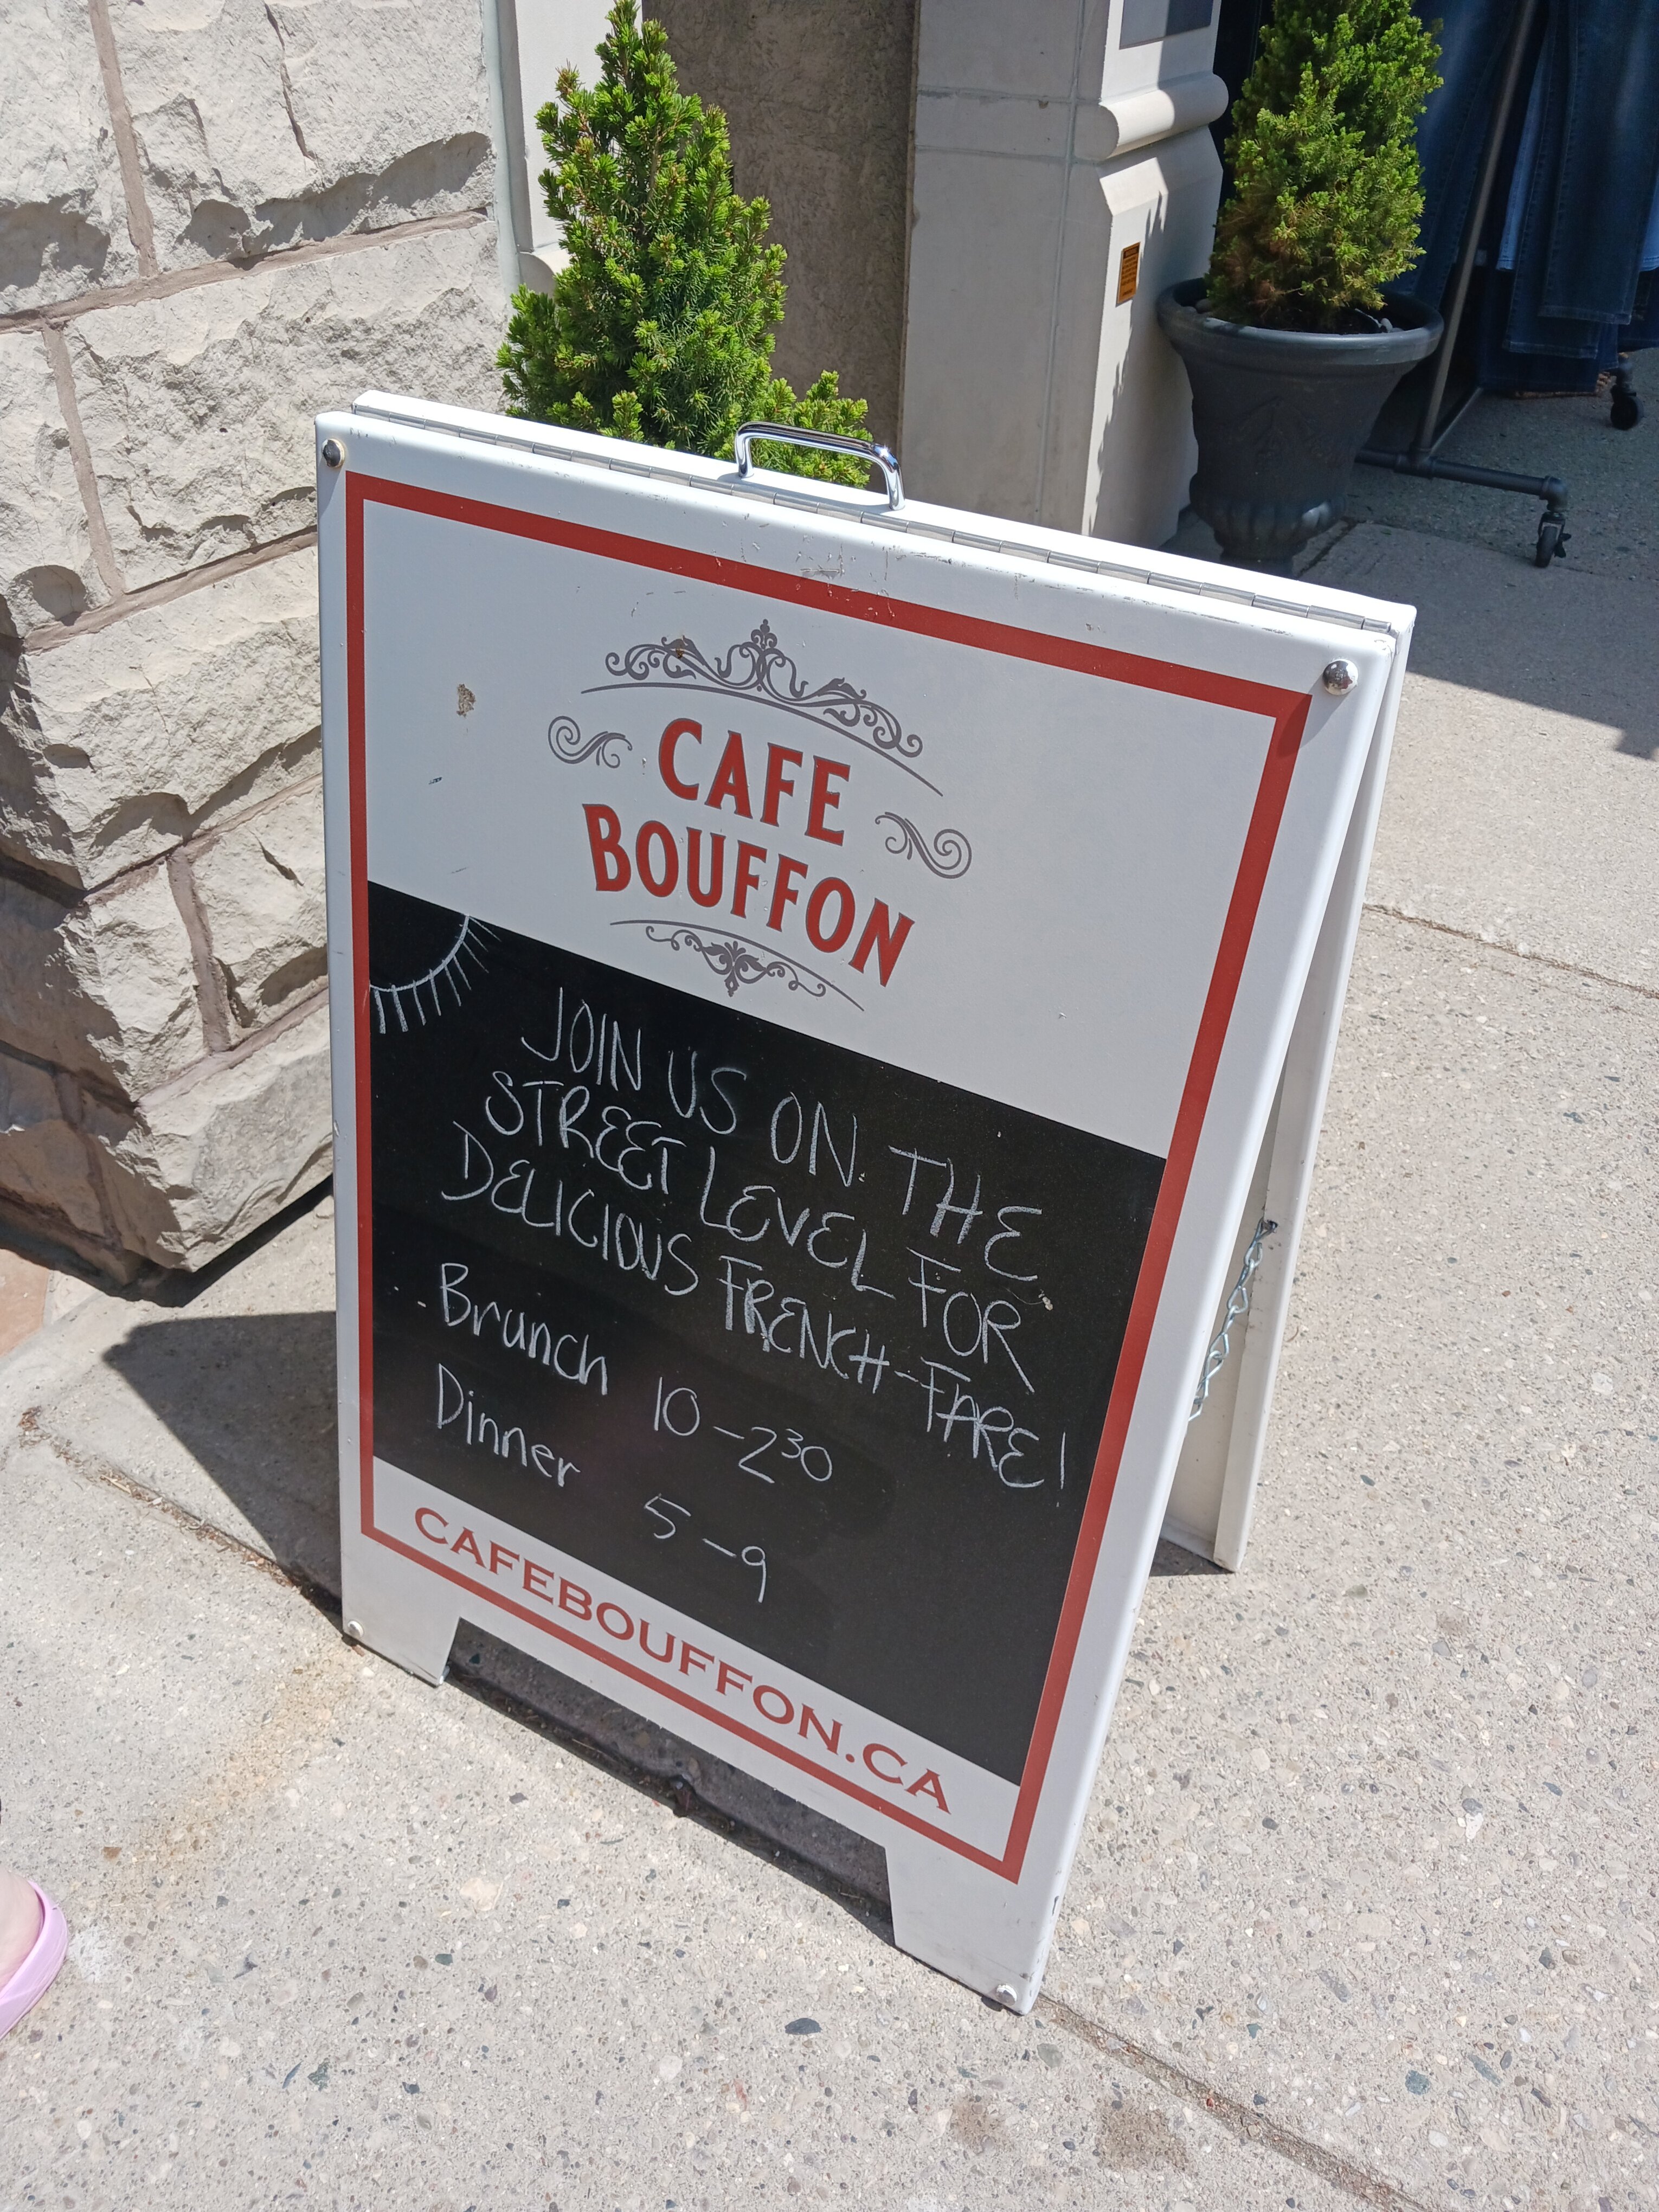 CAFE
BOUFFON
JOIN US ON THE
STREET LEVEL FOR
DELICIOUS FRENCH-FARE!
Brunch 10-2³⁰
Dinner 5-9
CAFEBOUFFON.CA